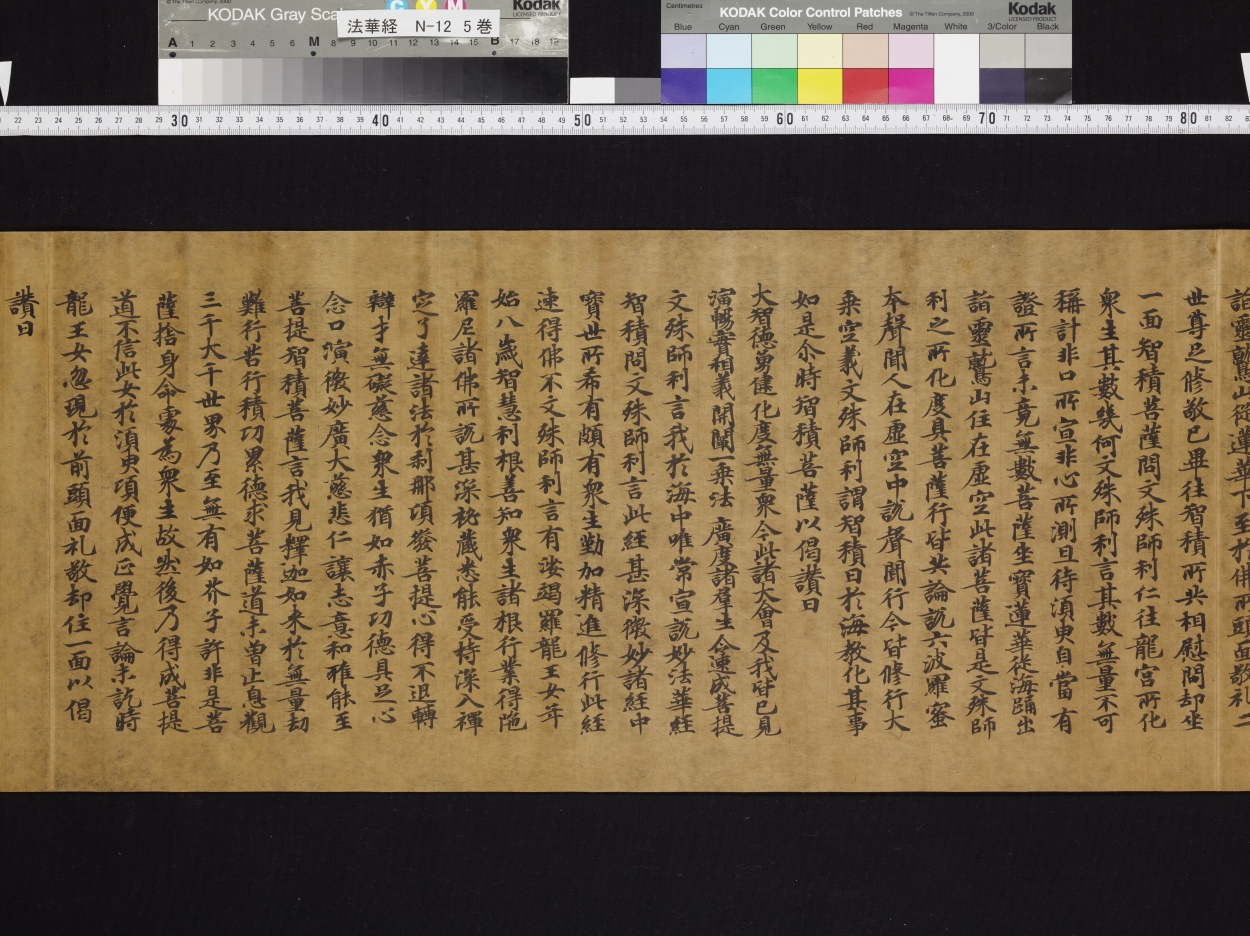 KODAK Gray Scale
法華経 N-12 5巻
Kodak
LICENSED PRODUCT
C Y M
A 1 2 3 4 5 6 M 8 9 10 11 12 13 14 15 B 17 18 19
Centimetres
KODAK Color Control Patches
© The Tiffen Company, 2000
Kodak
LICENSED PRODUCT
Blue Cyan Green Yellow Red Magenta White 3/Color Black
22 23 24 25 26 27 28 29 30 31 32 33 34 35 36 37 38 39 40 41 42 43 44 45 46 47 48 49 50 51 52 53 54 55 56 57 58 59 60 61 62 63 64 65 66 67 68 69 70 71 72 73 74 75 76 77 78 79 80 81 82
詣靈鷲山從蓮華下至於佛所頭面敬礼二
世尊足修敬已畢往智積所共相慰問却坐
一面智積菩薩問文殊師利仁往龍宮所化
衆生其數幾何文殊師利言其數無量不可
稱計非口所宣非心所測且待湏臾自當有
證所言未竟無數菩薩坐寶蓮華從海踊出
詣靈鷲山住在虛空此諸菩薩皆是文殊師
利之所化度具菩薩行皆共論說六波羅蜜
本聲聞人在虛空中說聲聞行今皆修行大
乗空義文殊師利謂智積曰於海教化其事
如是尒時智積菩薩以偈讃曰
大智德勇健化度無量衆今此諸大會及我皆已見
演暢實相義開闡一乗法廣度諸羣生令速成菩提
文殊師利言我於海中唯常宣說妙法華經
智積問文殊師利言此經甚深微妙諸經中
寶世所希有頗有衆生勤加精進修行此經
速得佛不文殊師利言有娑竭羅龍王女年
始八歲智慧利根善知衆生諸根行業得陁
羅尼諸佛所說甚深祕藏悉能受持深入禪
定了達諸法於剎那頃發菩提心得不退轉
辯才無礙慈念衆生猶如赤子功德具足心
念口演微妙廣大慈悲仁讓志意和雅能至
菩提智積菩薩言我見釋迦如来於無量劫
難行苦行積功累德求菩薩道未曾止息觀
三千大千世界乃至無有如芥子許非是菩
薩捨身命處為衆生故然後乃得成菩提
道不信此女於湏臾頃便成正覺言論未訖時
龍王女忽現於前頭面礼敬却住一面以偈
讃曰